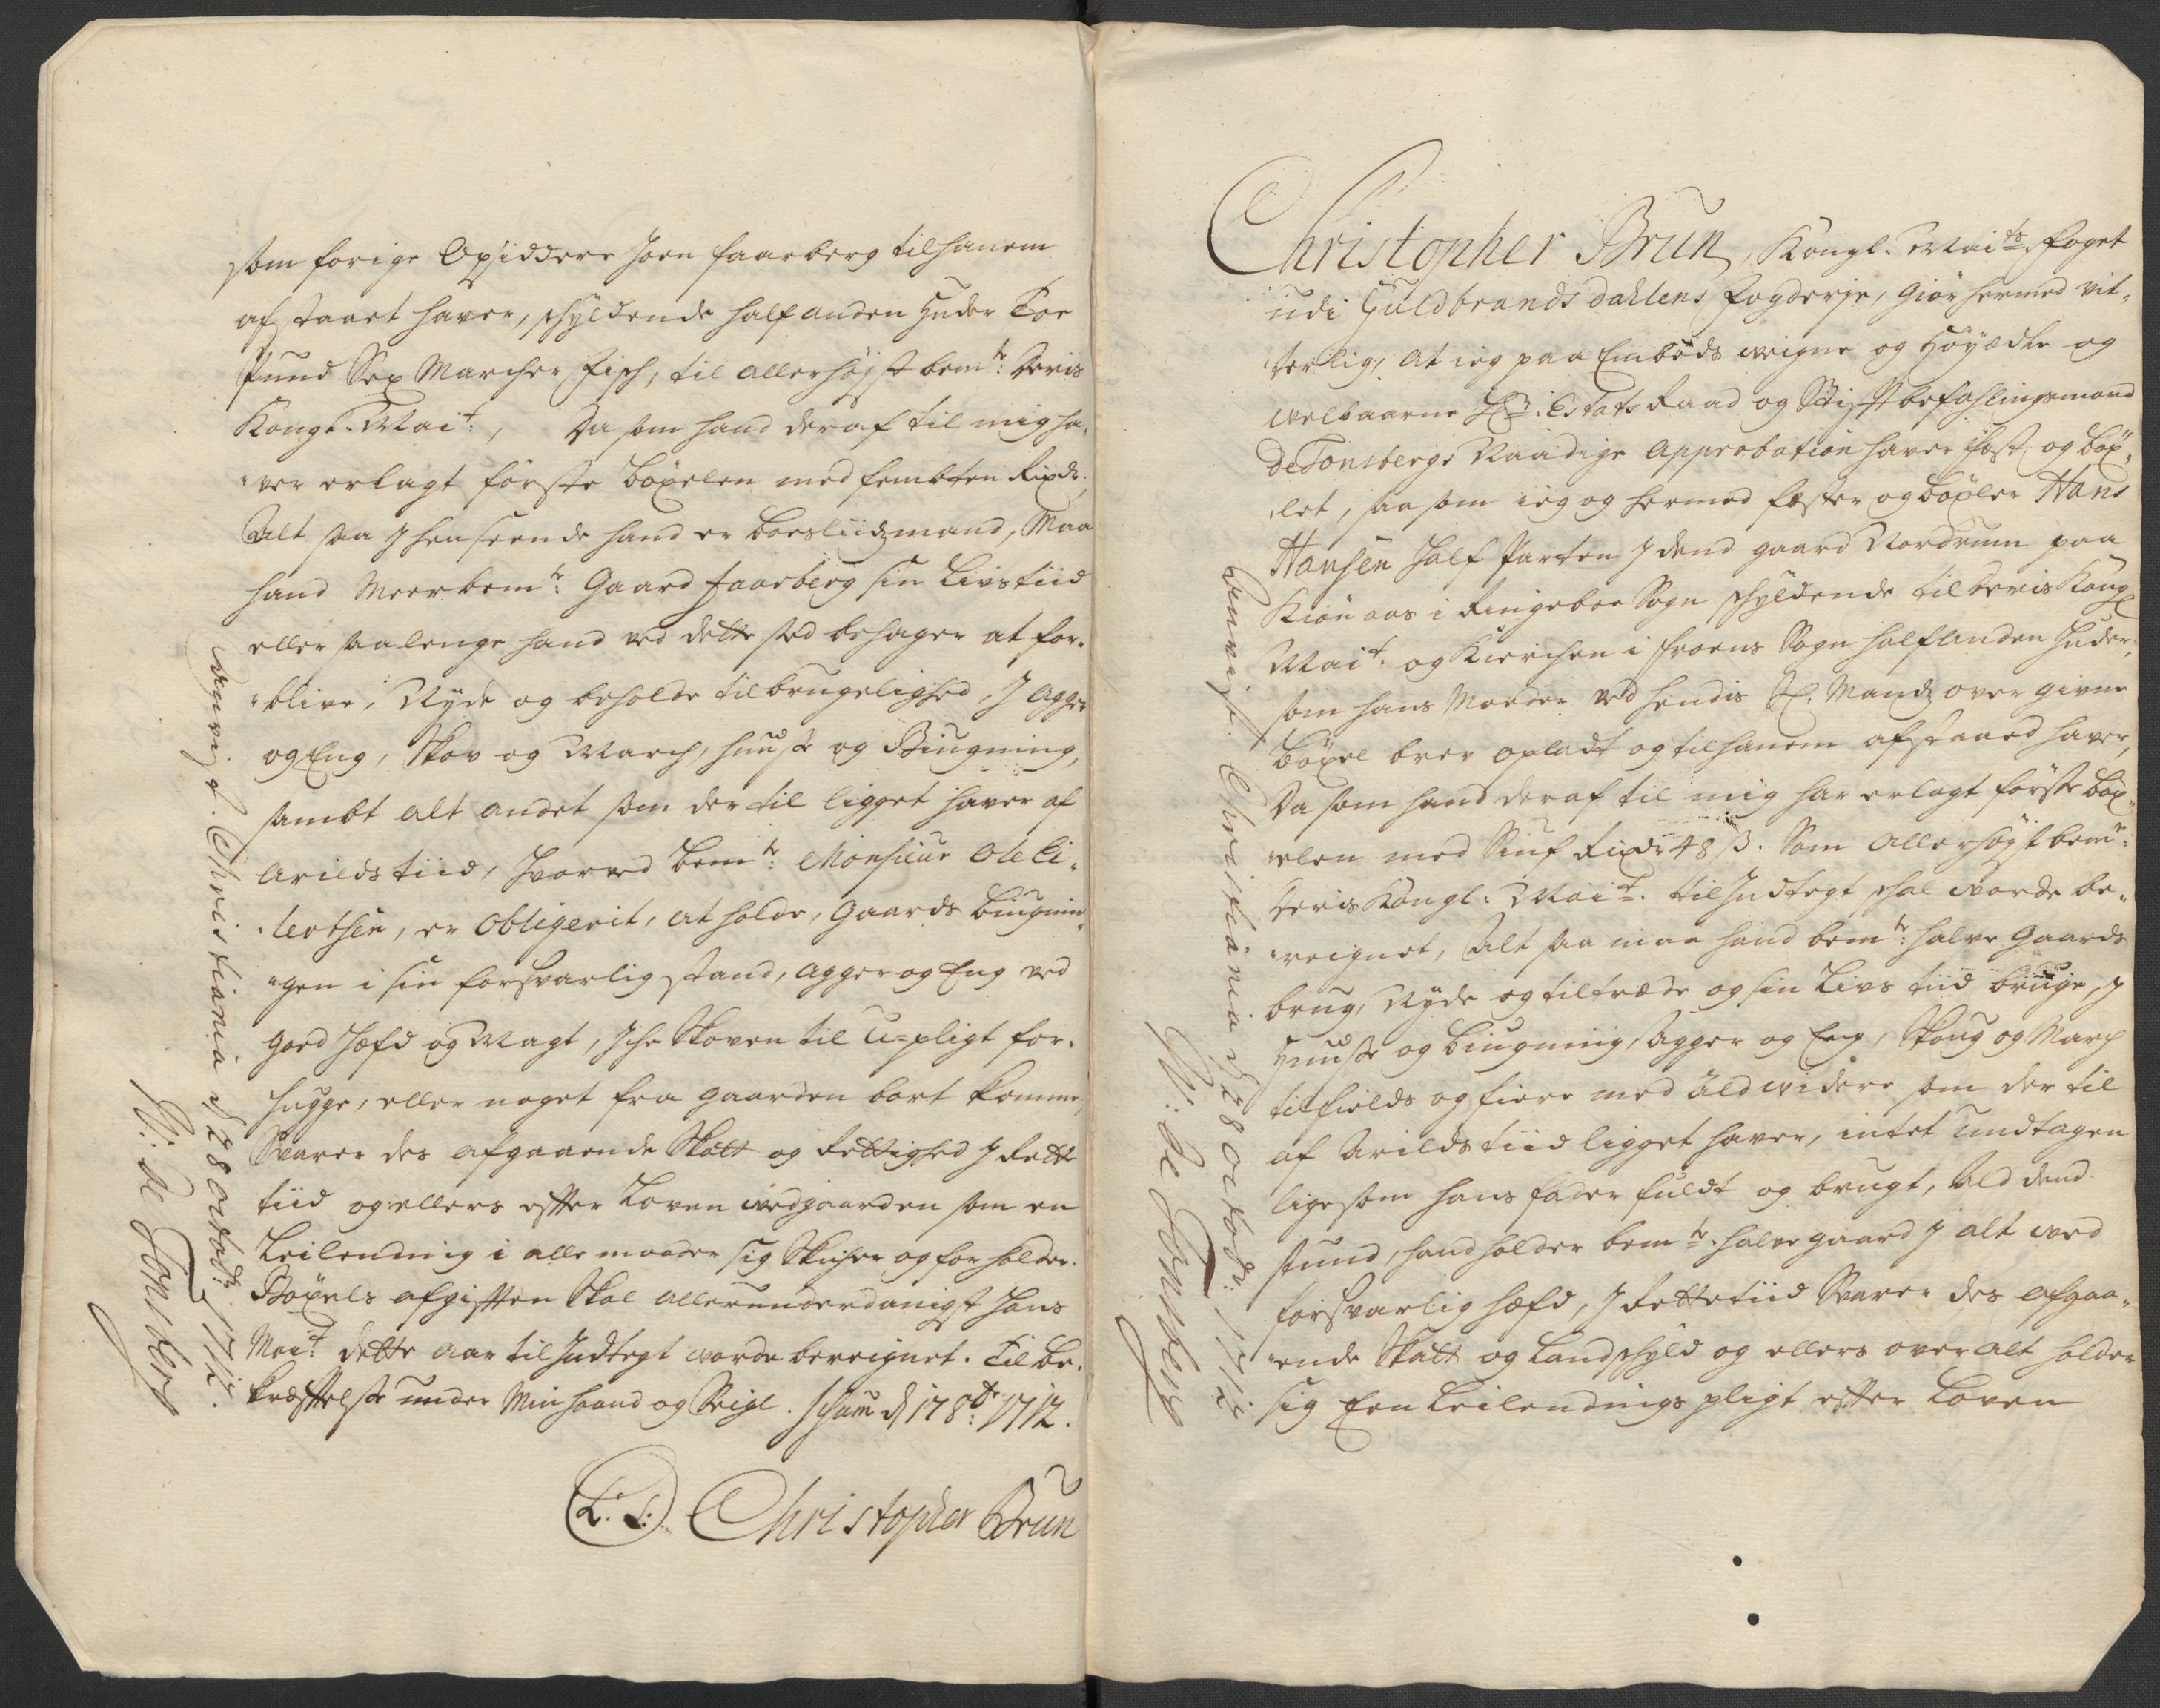 som forige Opsiddere Joen faarberg til hanem
afstaaet haver, schyldende half anden Huder Toe
pund Sex Marcher fisch, til allerhøigst bemte: Deris
Kongl. Mait:, Da som hand deraf til mig ha„
„ver erlagt første böxelen med fembten Rixdr.
Alt saa J henseende hand er boesliidzmand, Maa
hand Meerbemte: Gaard faarberg sin Livstiid
eller saalenge hand ved dette sted behager at for„
„blive, Nyde og beholde til brugelighed, J Agger
og Eng, Skov og March, huuse og Biugning,
sambt alt andet som der til ligget haver af
Arilds tiid, Hvorved bemte: Monsieur Ole Ei„
„lertsen, er obligerit, at holde, Gaards biugnin„
„gen i sin forsvarlig stand, agger og Eng ved
goed Hæfd og Magt, iche Skoven til U=pligt for„
hugge, eller noget fra gaarden bort komme,
Svarer des afgaaende Skatt og Rettighed J Rette
tiid og ellers efter Loven ved gaarden som en
Leilending i alle maader sig Skicher og for holder.
Böxels afgifften Skal allerunderdanigst Hans
Mait: dette aar til Indtegt vorde bereignet. Til be„
kræfftelse under Min haand og Seigl. Schum d 17 8br: 1712.
(L. S:) Christopher Brun
Anvist. Christiania d 28 octobr: 1712.
W: de Tonsberg
Christopher Brun, Kongl. Maits: foget
udi Guldbrandsdahlens fogderje, Giör hermed vit„
„terlig, At ieg paa Embeds veigne og Höyædle og
velbaarne Hr: Estats Raad og Stiftbefahlingsmand
de Tonsbergs Naadige Approbation haver fæst og böx„
„let, saa som ieg og hermed fæster og böxler Hans
Hansen Half parten J dend gaard Nordrum paa
Kiönaas i Ringeboe Sogn schyldende til deris Kongl
Mait. og Kierchen i froens Sogn half anden Huder,
som hans Moeder ved hendis Sl. Mands over givne
Böxel brev opladt og til hanem afstaaed haver,
Da som hand deraf til mig har erlagt første böx„
„elen med Siuf Rixdr 48 s. Som allerhøigst bemte:
Deris Kongl. Mait. til Indtegt schal vorde be„
„reignet, Alt saa maa hand bemte: halve Gaards
brug, Nyde og tiltræde og sin Livs tiid bruge, J
Huuse og Biugning, Agger og Eng, Skoug og March
til fields og fiere med ald videre som der til
af Arilds tiid ligget haver, intet undtagen
ligesom hans fader fuldt og brugt, Ald dend
stund, hand holder bemte. halve gaard J alt ved
forsvarlig hæfd, J Rette tiid Svarer des afgaa„
„ende Skatt og Landschyld og ellers over alt holder
sig Een Leilendings pligt efter Loven
Anvist. Christiania d 28 octobr: 1712
W: de Tonsberg